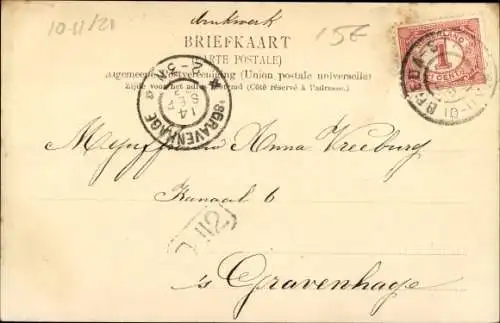 10-11/21
drukwerk
15€
BRIEFKAART
(CARTE POSTALE)
Algemeene Postvereeniging (Union postale universelle)
Zijde voor het adres bestemd (Côté réservé à l'adresse.)
1
CENT
BREDA
'S GRAVENHAGE
14
SEP
Mejuffrouw Anna Vreeburg
Kanaal 6
's Gravenhage